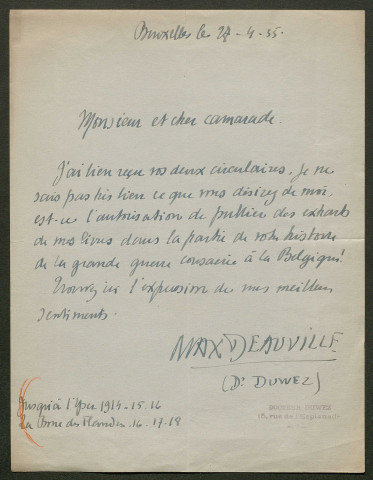 Bruxelles le 27-4-35.
Monsieur et cher camarade.
J'ai bien reçu vos deux circulaires, je ne
sais pas très bien ce que vous désirez de moi,
est-ce l'autorisation de publier des extraits
de mes livres dans la partie de votre histoire
de la grande guerre consacrée à la Belgique?
Trouvez ici l'expression de mes meilleurs
sentiments.
MAX DEAUVILLE
(Dr DUWEZ)
DOCTEUR DUWEZ
rue de l'
Jusqu'à l'Yser 1914-15-16
La Boue des Flandres. 16-17-18